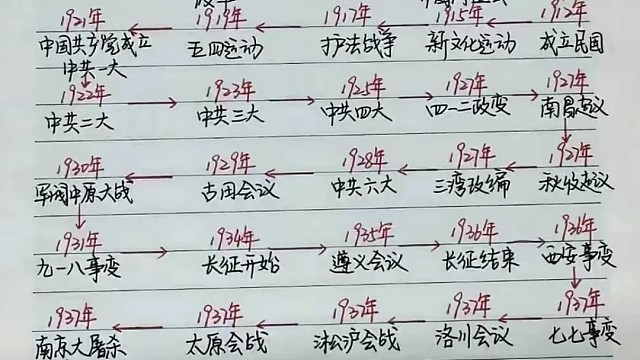 1921年 1919年 1917年 1915年 1912年
中国共产党成立 五四运动 护法战争 新文化运动 成立民国
中共一大
1922年 1923年 1925年 1927年 1927年
中共二大 中共三大 中共四大 四一二政变 南昌起义
1930年 1929年 1928年 1927年 1927年
军阀中原大战 古田会议 中共六大 三湾改编 秋收起义
1931年 1934年 1935年 1936年 1936年
九一八事变 长征开始 遵义会议 长征结束 西安事变
1937年 1937年 1937年 1937年 1937年
南京大屠杀 太原会战 淞沪会战 洛川会议 七七事变